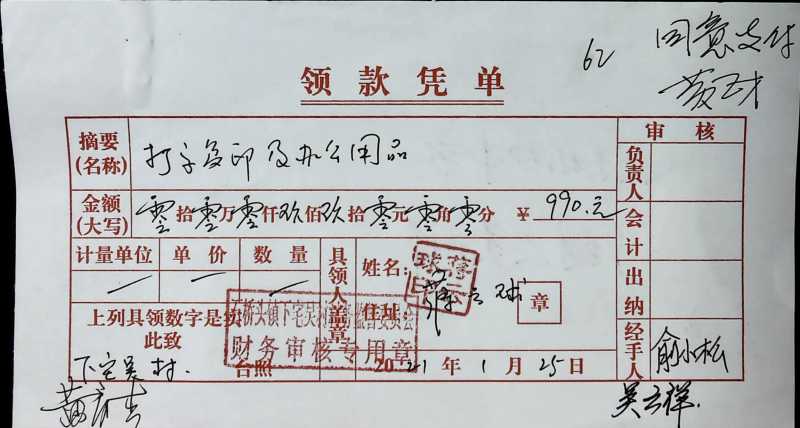 62 同意支付
领款凭单
摘要(名称) 打字复印及办公用品
审核
负责人
金额(大写) 零拾零万零仟玖佰玖拾零元零角零分 ¥ 990.元
会计
计量单位 单价 数量
具领人盖章
姓名:
住址:
章
出纳
上列具领数字是实
此致
石桥头镇下宅吴村
财务审核专用章
经手人 俞小松
下宅吴村. 台照 2021年1月25日
吴云祥.